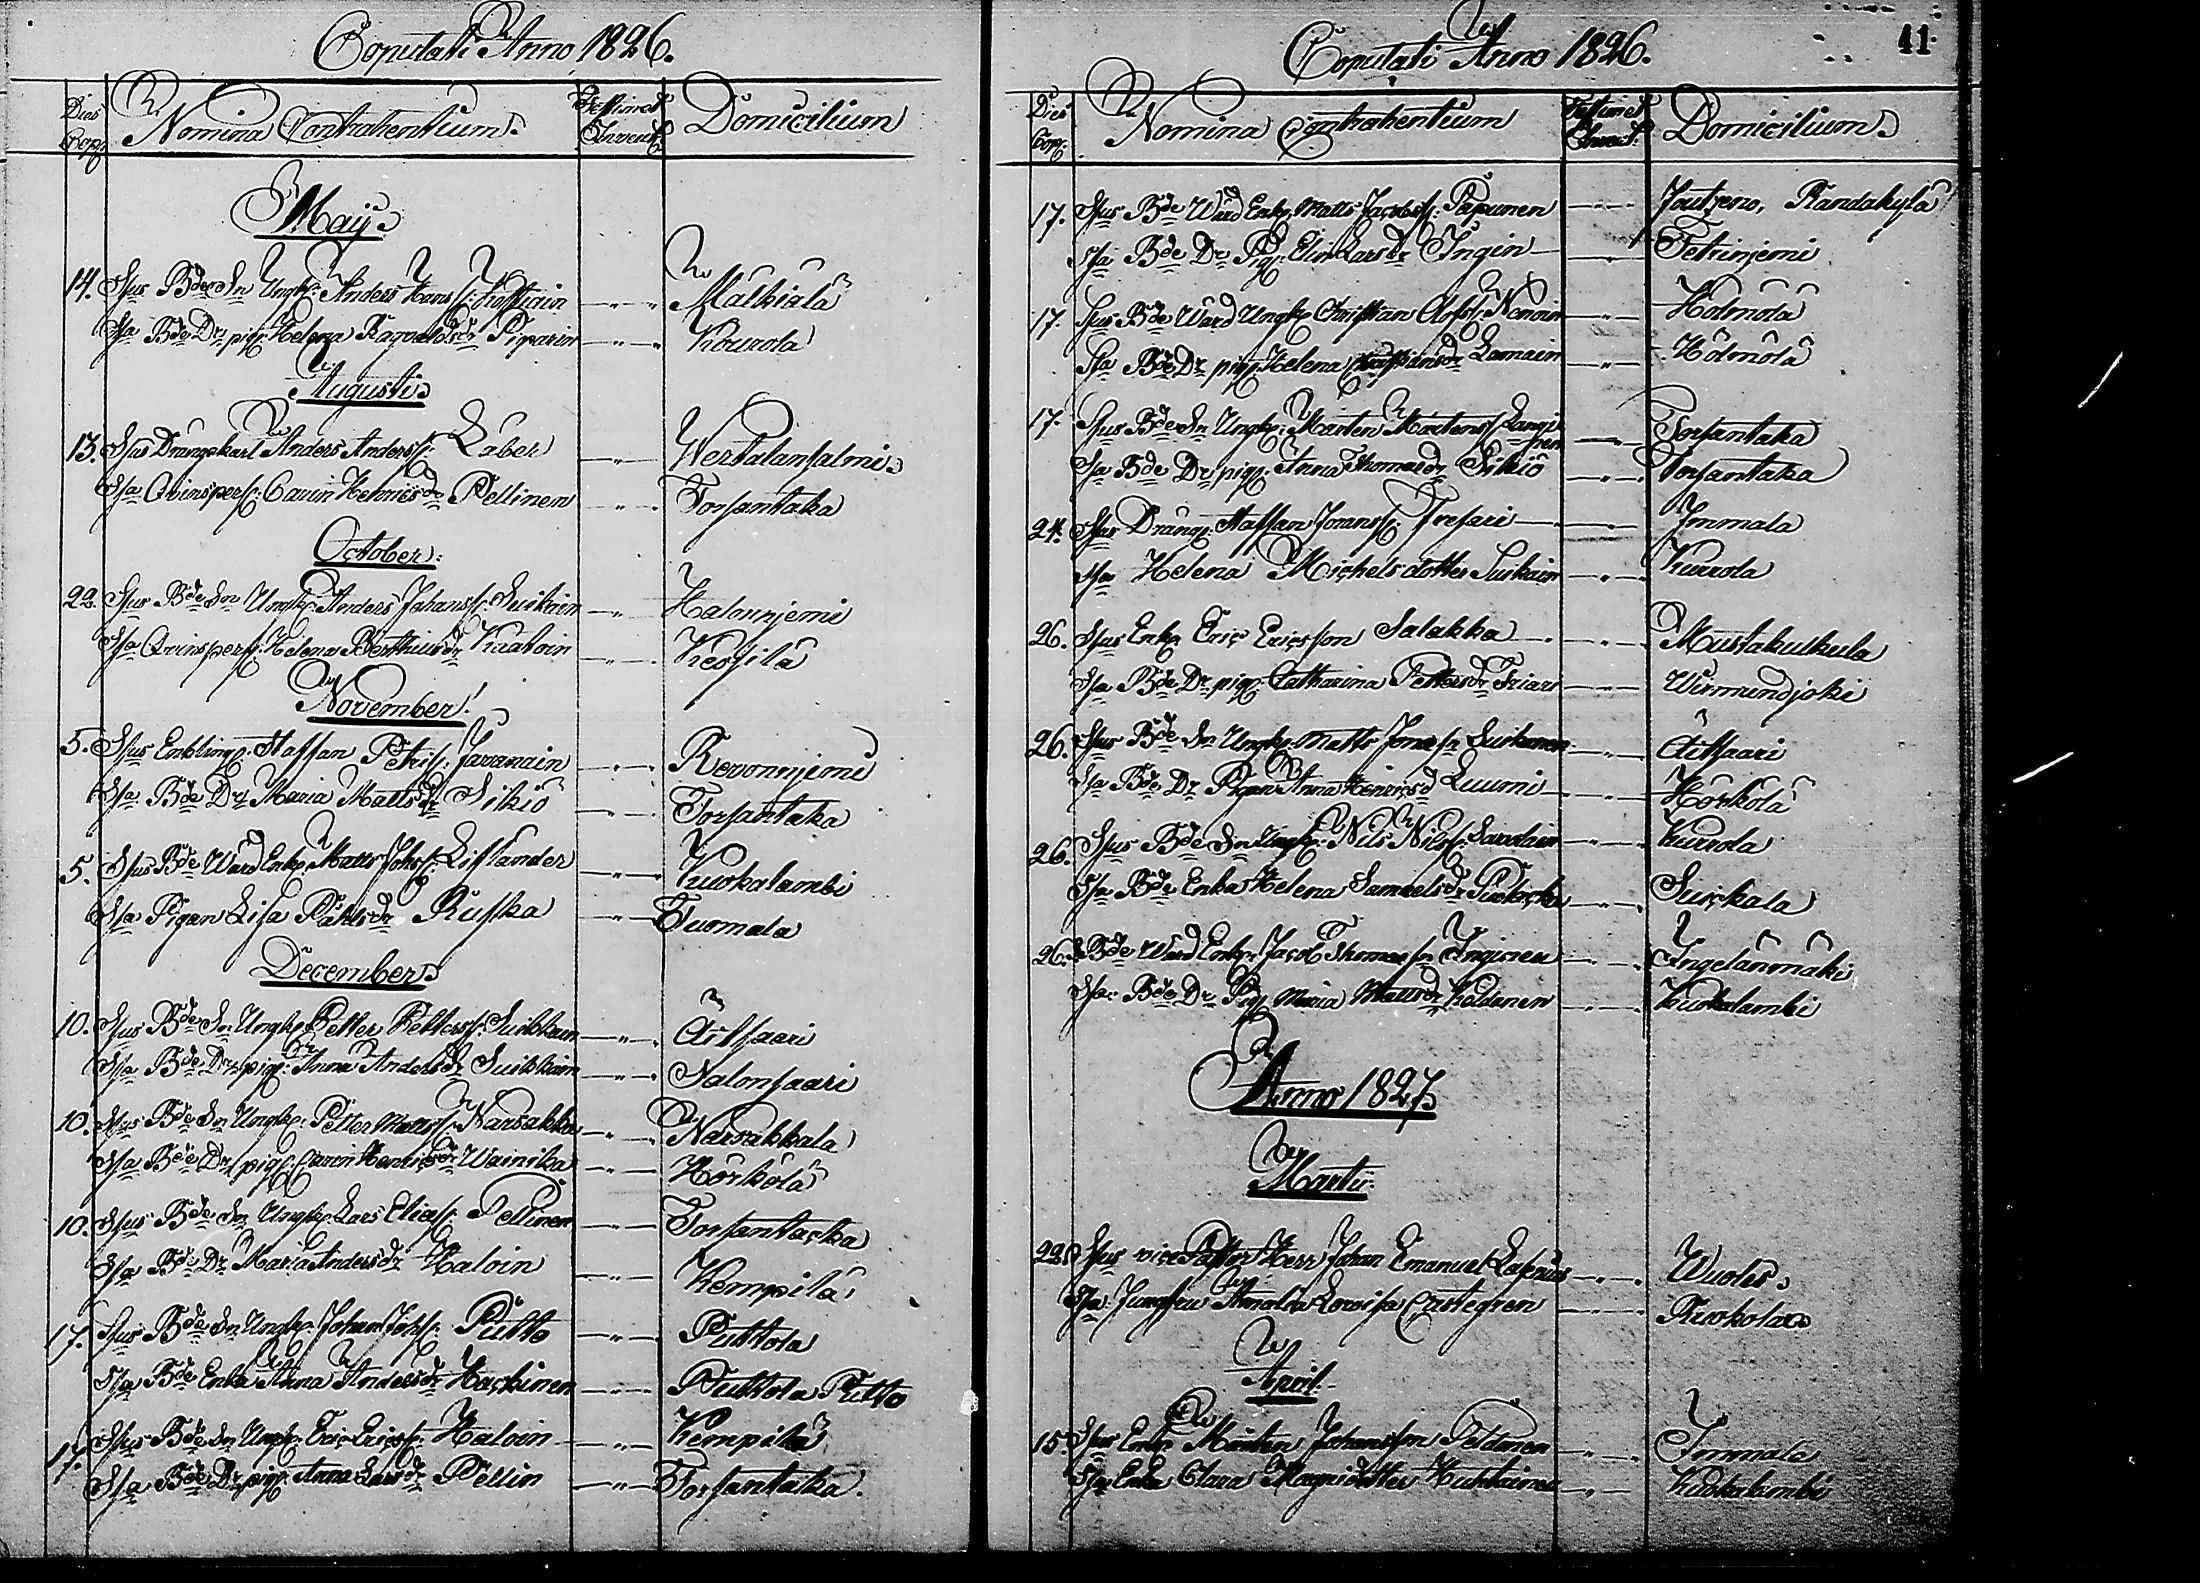 Copulati Anno 1826.
Dies Cop. Nomina Contrahentium. Testimon. Domicilium
May.
14. Spus Bde Sn Ungk. Anders Hans s. Mälkiälä
Spa Bde Dr pig. Helena Piparin Kourola
Augusti
13. Spus Drängekarl Anders Anderss. Läber Wertalansalmi
Spa Qvinspers. Carin Henricsdr Pellinen Torsantaka
October.
22. Spus Bde Sn Ungk. Anders Johanss. Suikain Halonnjemi
Spa Qvinspers. Helena Kaatoin Kessilä
November.
5. Spus Enkling. Staffan Petri s. Javanain Revonnjemi
Spa Bde Dr Maria Mattsdr Sikiö Torsantaka
5. Spus Bde Wärd Enkl. Matts Johs s. Lifländer Kuokalambi
Spa Pigan Lisa Påhlsdr Ruska Tuomala
December.
10. Spus Bde Sn Ungk. Petter Petterss. Suikkain Äitsaari
Spa Bde Dr pig. Anna Andersdr Suikkain Salonsaari
10. Spus Bde Sn Ungk. Petter Matts s. Närsakka Närsäkkälä
Spa Bde Dr pig. Carin Henricsdr Wainikka Hörkölä
10. Spus Bde Sn Ungk. Lars Elias s. Pellinen Torsantacka
Spa Bde Dr Maria Andersdr Haloin Kempilä
17. Spus Bde Sn Ungk. Johan Johs s. Putto Puttola
Spa Bde Enka Anna Andersdr Hackinen Puttola Putto
17. Spus Bde Sn Ungk. Eric Erics s. Haloin Kempilä
Spa Bde Dr pig. Anna Larsdr Pellin Torsantaka.
Copulati Anno 1826. 41
Dies Cop. Nomina Contrahentium Testim. Domicilium
17. Spus Bde Wärd Enkl. Matts Jacobss. Papunen Joutzeno, Randakylä
Spa Bde Dr Pig. Elin Larsdr Ingin Tetrinjemi
17. Spus Bde Wärd Ungk. Christian Nonoin Holmölä
Spa Bde Dr pig. Helena Christiansdr Lamain Holmölä
17. Spus Bde Sn Ungk. Mårten Mårtenss. Torsantaka
Spa Bde Dr pig. Anna Thomasdr Sikiö Torsantaka
24. Spus Dräng. Staffan Göranss. Immala
Spa Helena Michelsdotter Suikain Kurrola
26. Spus Enkl. Eric Ericsson Salakka Mustakulkula
Spa Bde Dr pig. Catharina Pettersdr Friari Wirmundjoki
26. Spus Bde Sn Ungk. Matts Jonas sn Suikanen Äitsaari
Spa Bde Dr Pigan Anna Henricsd Luumi Hörkölä
26. Spus Bde Sn Ungk. Nils Nilss. Kurrola
Spa Bde Enka Helena Samuelsdr Suickala
26. Bde Wärd Enkl. Jacob Thomas sn Inginen Ingelänmäki
Spa Bde Dr Pig. Maria Mattsdr Kuokalambi
Anno 1827.
Martii.
22. Spus vice Pastor Herr Johan Emanuel Wuoles
Spa Jungfru Amalia Lovisa Castegren Ruokolax
April.
15 Spus Enkl. Mårten Johansson Peldonen Immala
Spa Enka Clara Magnidotter Huhkainen Kuokalambi